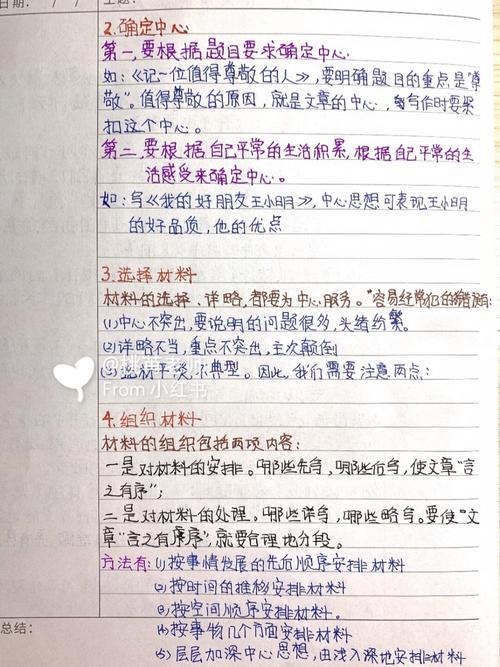 日期： / /
主题：
2.确定中心
第一,要根据题目要求确定中心
如:《记一位值得尊敬的人》,要明确题目的重点是“尊
敬”。值得尊敬的原因,就是文章的中心,写作时要紧
扣这个中心。
第二,要根据自己平常的生活积累,根据自己平常的生
活感受来确定中心。
如:写《我的好朋友王小明》,中心思想可表现王小明
的好品质,他的优点
3.选择材料
材料的选择、详略,都要为中心服务。"容易经常犯的错误:
(1)中心不突出,要说明的问题很多,头绪纷繁。
(2)详略不当,重点不突出,主次颠倒
(3)选材平淡,不典型。因此,我们需要注意两点:
@桃黄老师
From 小红书
4.组织材料
材料的组织包括两项内容:
一是对材料的安排。哪些先写,哪些后写,使文章“言
之有序”;
二是对材料的处理。哪些详写,哪些略写。要使“文
章“言之有序”,就要合理地分段。
方法有:(1)按事情发展的先后顺序安排材料
(2)按时间的推移安排材料
(3)按空间顺序安排材料。
(4)按事物几个方面安排材料
(5)层层加深中心思想,由浅入深地安排材料
总结：